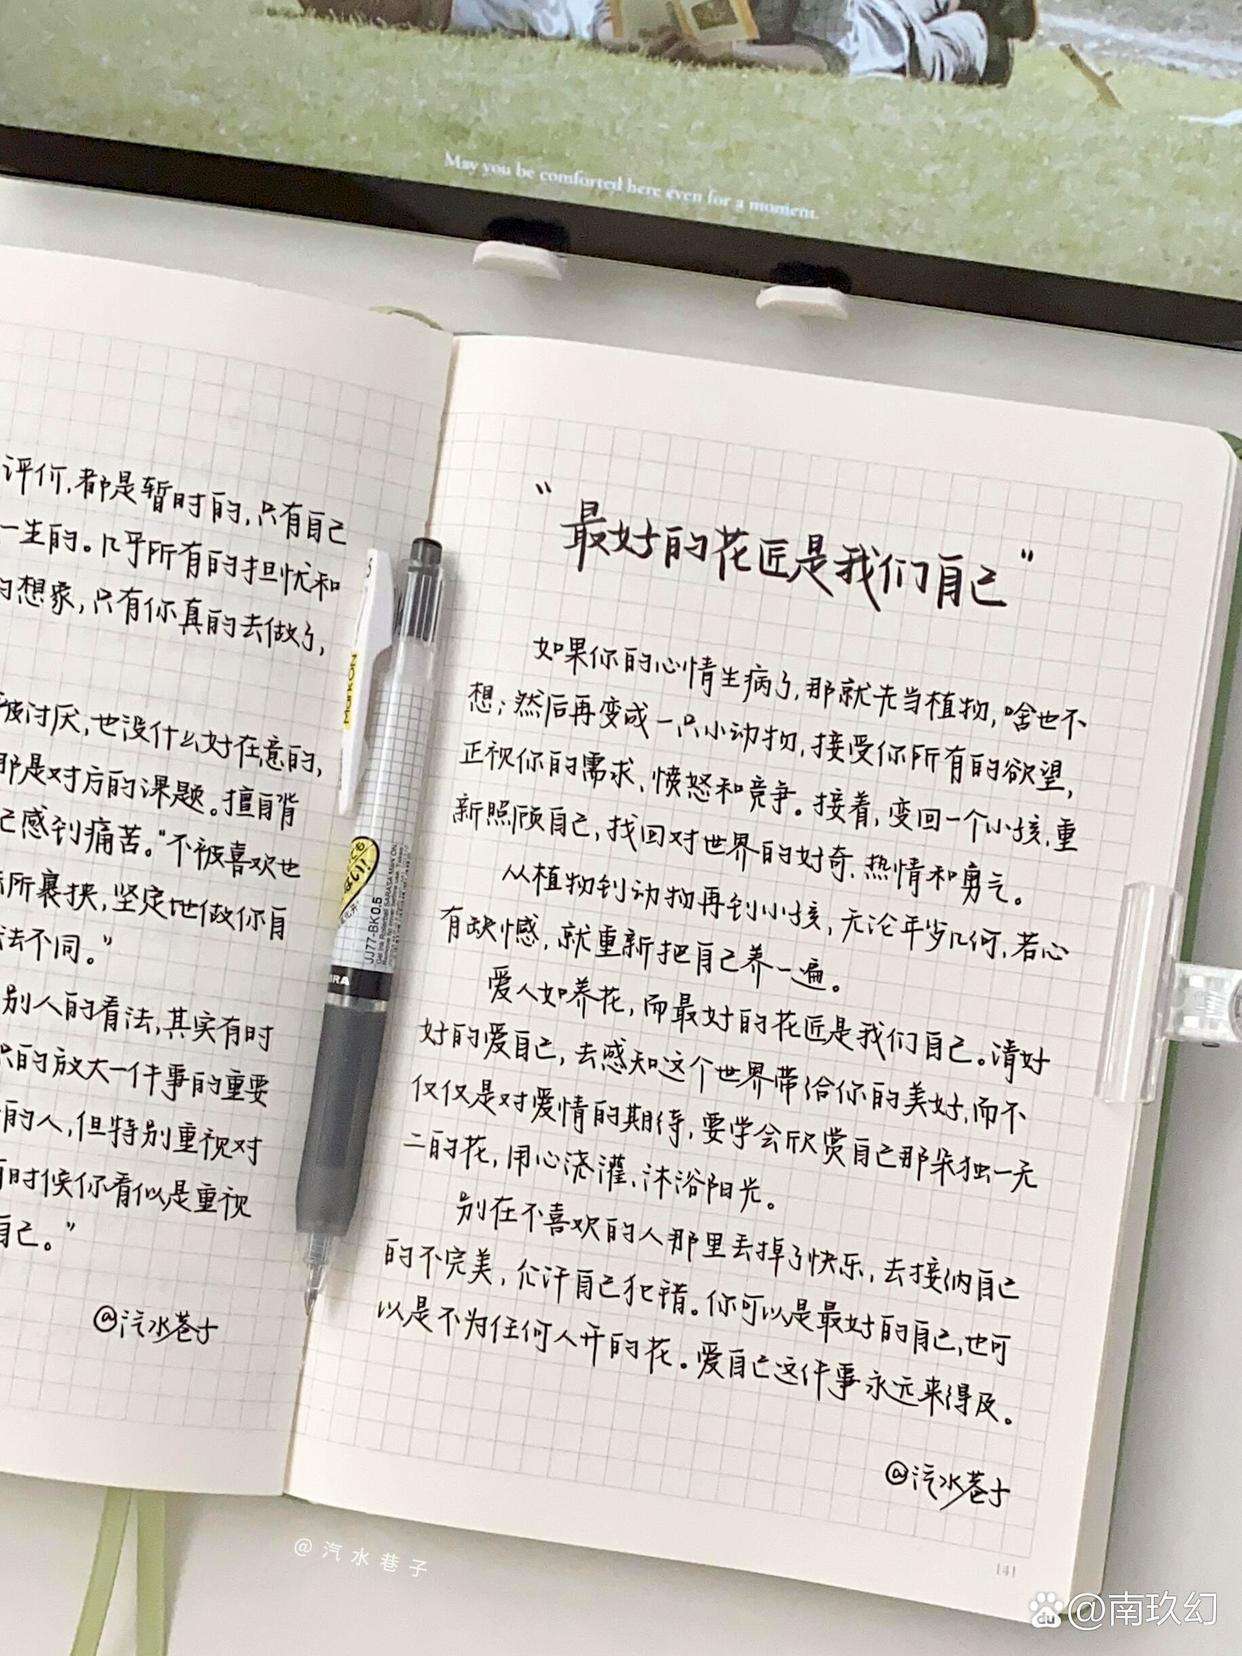 May you be comforted here even for a moment.
评价,都是暂时的,只有自己
一生的。几乎所有的担忧和
的想象,只有你真的去做了,
被讨厌,也没什么好在意的,
那是对方的课题。擅自背
己感到痛苦。“不被喜欢也
所裹挟,坚定地做你自
法不同。”
别人的看法,其实有时
的放大一件事的重要
的人,但特别重视对
有时候你看似是重视
自己。”
@汽水巷子
JJ77-BK 0.5
“最好的花匠是我们自己”
如果你的心情生病了,那就先当植物,啥也不
想;然后再变成一只小动物,接受你所有的欲望,
正视你的需求、愤怒和竞争。接着,变回一个小孩,重
新照顾自己,找回对世界的好奇、热情和勇气。
从植物到动物再到小孩,无论年岁几何,若心
有缺憾,就重新把自己养一遍。
爱人如养花,而最好的花匠是我们自己。请好
好的爱自己,去感知这个世界带给你的美好,而不
仅仅是对爱情的期待,要学会欣赏自己那朵独一无
二的花,用心浇灌、沐浴阳光。
别在不喜欢的人那里丢掉了快乐,去接纳自己
的不完美,允许自己犯错。你可以是最好的自己,也可
以是不为任何人开的花。爱自己这件事永远来得及。
@汽水巷子
141
@汽水巷子
du @南玖幻